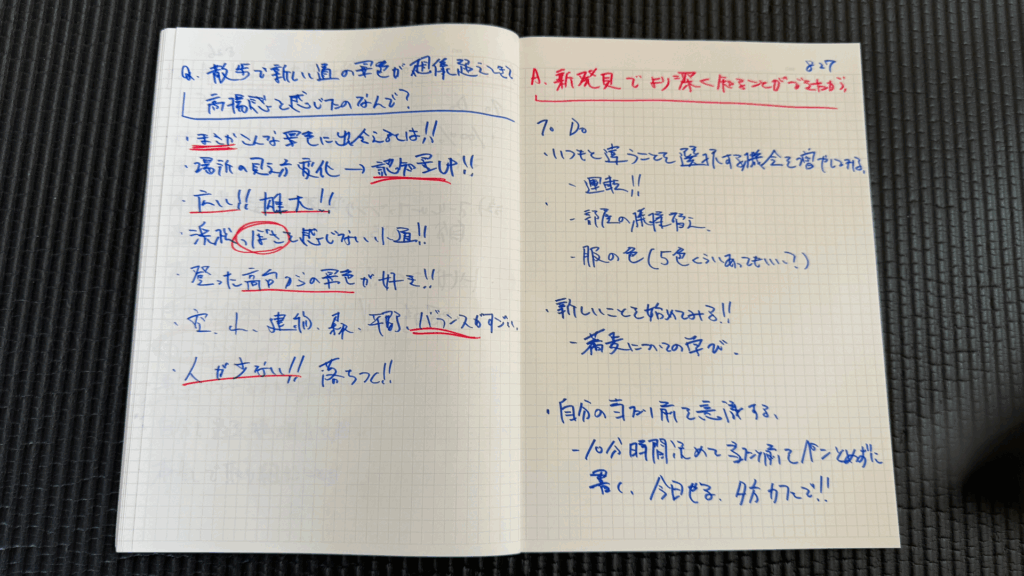 Q. 散歩で新しい道の景色が想像超えてきて
高揚感を感じたのなんで？
・まさかこんな景色に出会えるとは!!
・場所の見え方変化→認知量UP!!
・広い!! 雄大!!
・浜松っぽさを感じない小道!!
・登った高台からの景色が好き!!
・空、山、建物、森、平野、バランスがすごい。
・人が少ない!! 落ちつく!!
8.27
A. 新発見でより深く知ることができたから。
To Do
・いつもと違うことを選択する機会を増やしてみる。
- 運転!!
- 部屋の模様替え、
- 服の色(5色くらいあってもいい？)
・新しいことを始めてみる!!
- 蕎麦についての学び、
・自分の当たり前を意識する、
- 10分時間決めて当たり前をペンとめずに
書く、今日やる、夕方カフェで!!